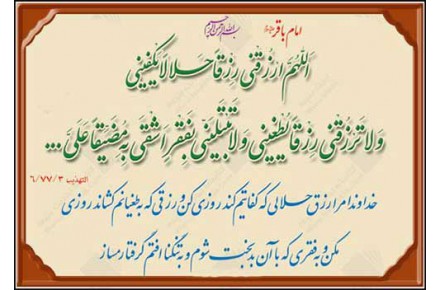 بسم الله الرحمن الرحیم
امام باقر
اَللّهُمَّ ارْزُقْنی رِزْقاً حَلالاً یَکْفینی
وَلا تَرْزُقْنی رِزْقاً یُطْغینی وَلا تَبْتَلِیَنّی بِفَقْرٍ اَشْقی بِهِ مُضَیَّقاً عَلَیَّ ...
التهذیب ۳ / ۷۷ / ۶
خداوندا مرا رزق حلالی که کفایتم کند روزی کن و رزقی که به طغیانم کشاند روزی
مکن و به فقری که با آن بدبخت شوم و به تنگنا افتم گرفتار مساز